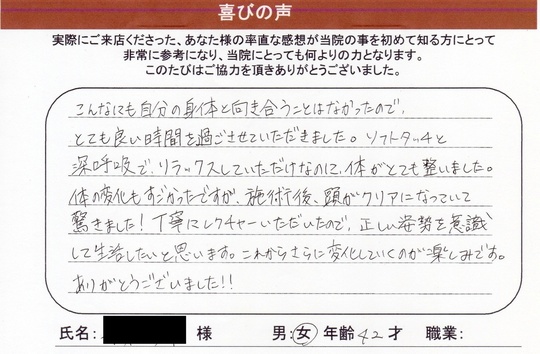 喜びの声
実際にご来店くださった、あなた様の率直な感想が当院の事を初めて知る方にとって
非常に参考になり、当院にとっても何よりの力となります。
このたびはご協力を頂きありがとうございました。
こんなにも自分の身体と向き合うことはなかったので、
とても良い時間を過ごさせていただきました。ソフトタッチと
深呼吸で、リラックスしていただけなのに、体がとても整いました。
体の変化もすごかったですが、施術後、頭がクリアになっていて
驚きました!丁寧にレクチャーいただいたので、正しい姿勢を意識
して生活したいと思います。これからさらに変化していくのが楽しみです。
ありがとうございました!!
氏名: 様 男:女 年齢42才 職業: